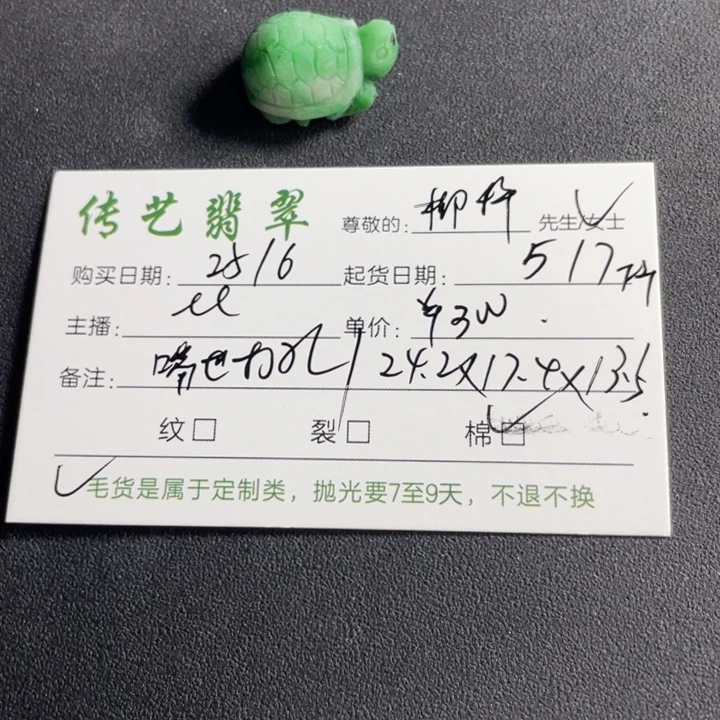 传艺翡翠 尊敬的: 柳 先生/女士
购买日期: 25/6 起货日期: 517
主播: 单价: ¥3W
备注: 嘴巴打孔 24.2X17.4X13.5
纹□ 裂□ 棉□
毛货是属于定制类，抛光要7至9天，不退不换